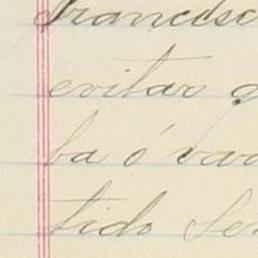 Francisc
evitar q
ba ó var
tido Ser